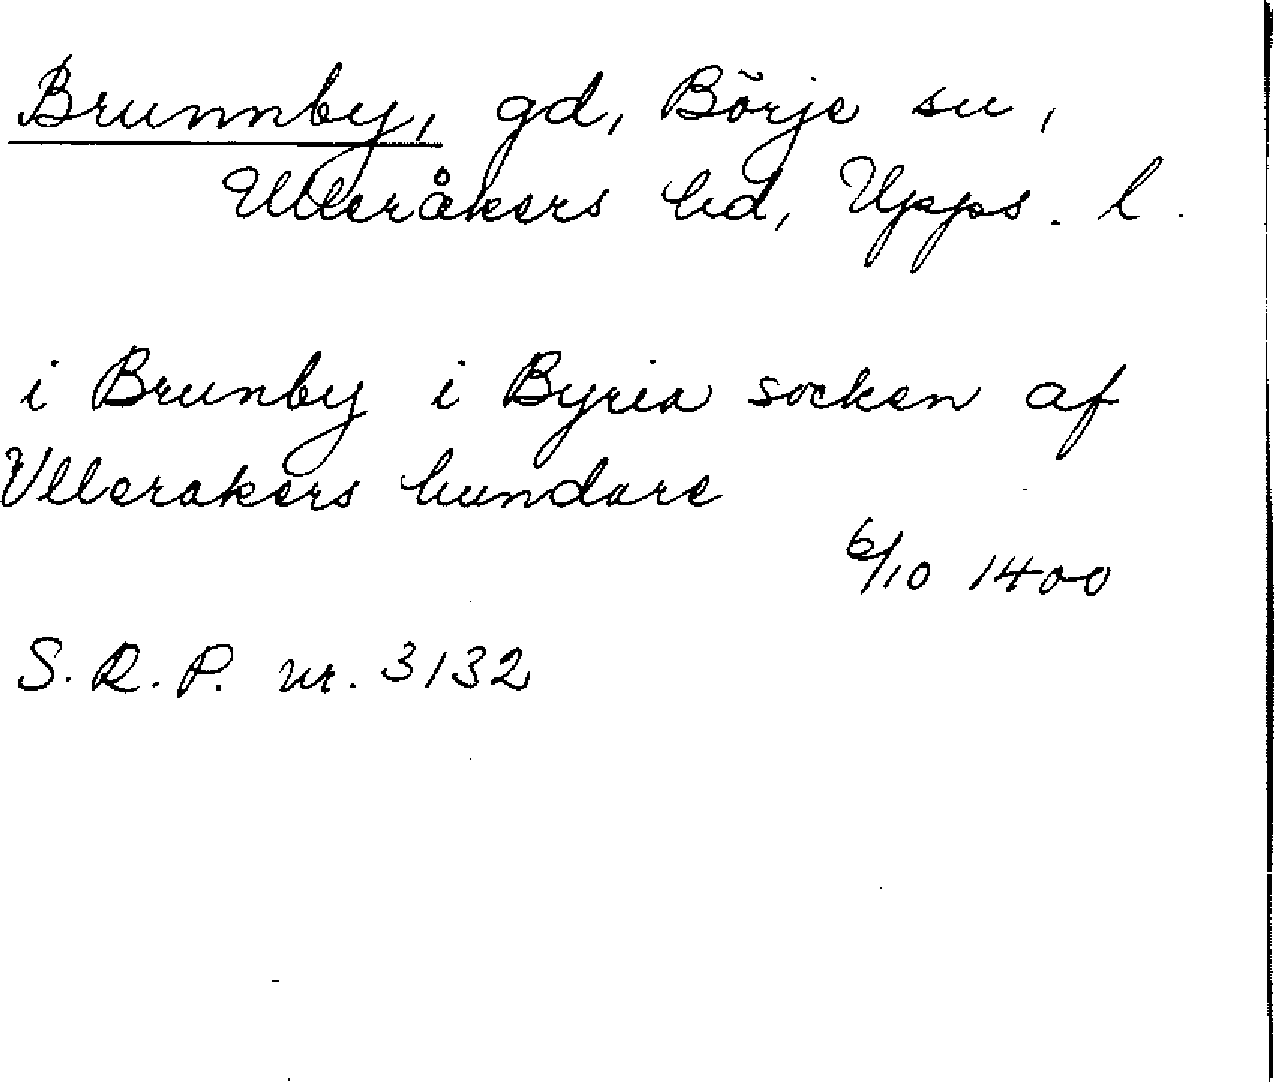 Brunnby, gd, Börje sn,
Ulleråkers hd, Upps. l.
i Brunby i Byria socken af
Vllerakers hundare
6/10 1400
S. R. P. nr. 3132